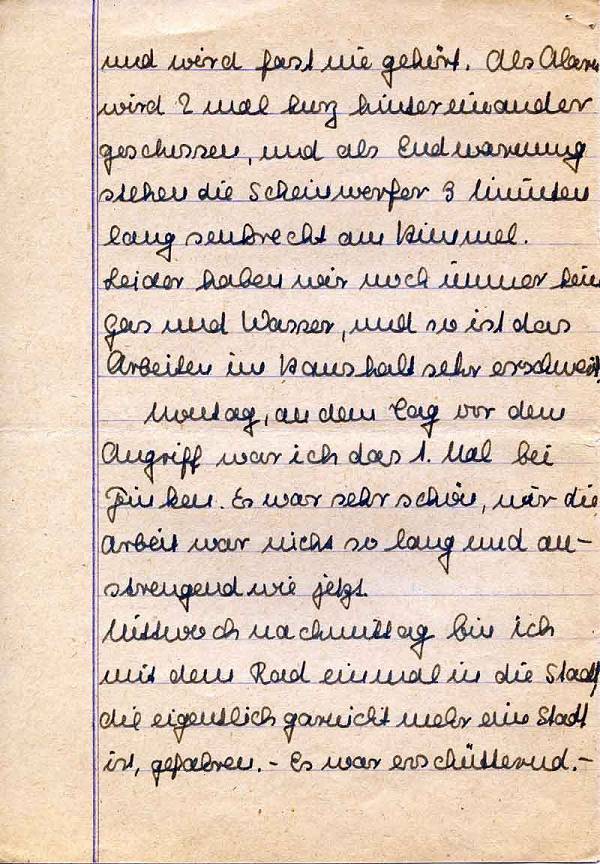 und wird fast nie gehört. Als Alarm
wird 2 mal kurz hintereinander
geschossen, und als Endwarnung
stehen die Scheinwerfer 3 Minuten
lang senkrecht am Himmel.
Leider haben wir noch immer kein
Gas und Wasser, und so ist das
Arbeiten im Haushalt sehr erschwert.
Montag, an dem Tag vor dem
Angriff war ich das 1. Mal bei
Finken. Es war sehr schön, nur die
Arbeit war nicht so lang und an-
strengend wie jetzt.
Mittwoch nachmittag bin ich
mit dem Rad einmal in die Stadt,
die eigentlich garnicht mehr eine Stadt
ist, gefahren. - Es war erschütternd. -